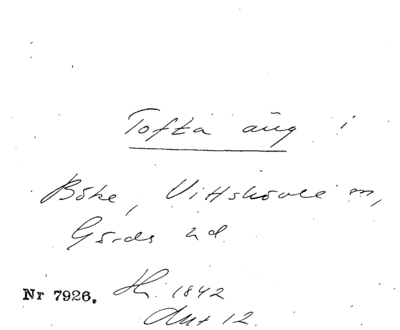 Tofta äng i
Böke, Vittskövle sn,
Gärds hd.
Nr 7926. H. 1842
Akt 12.